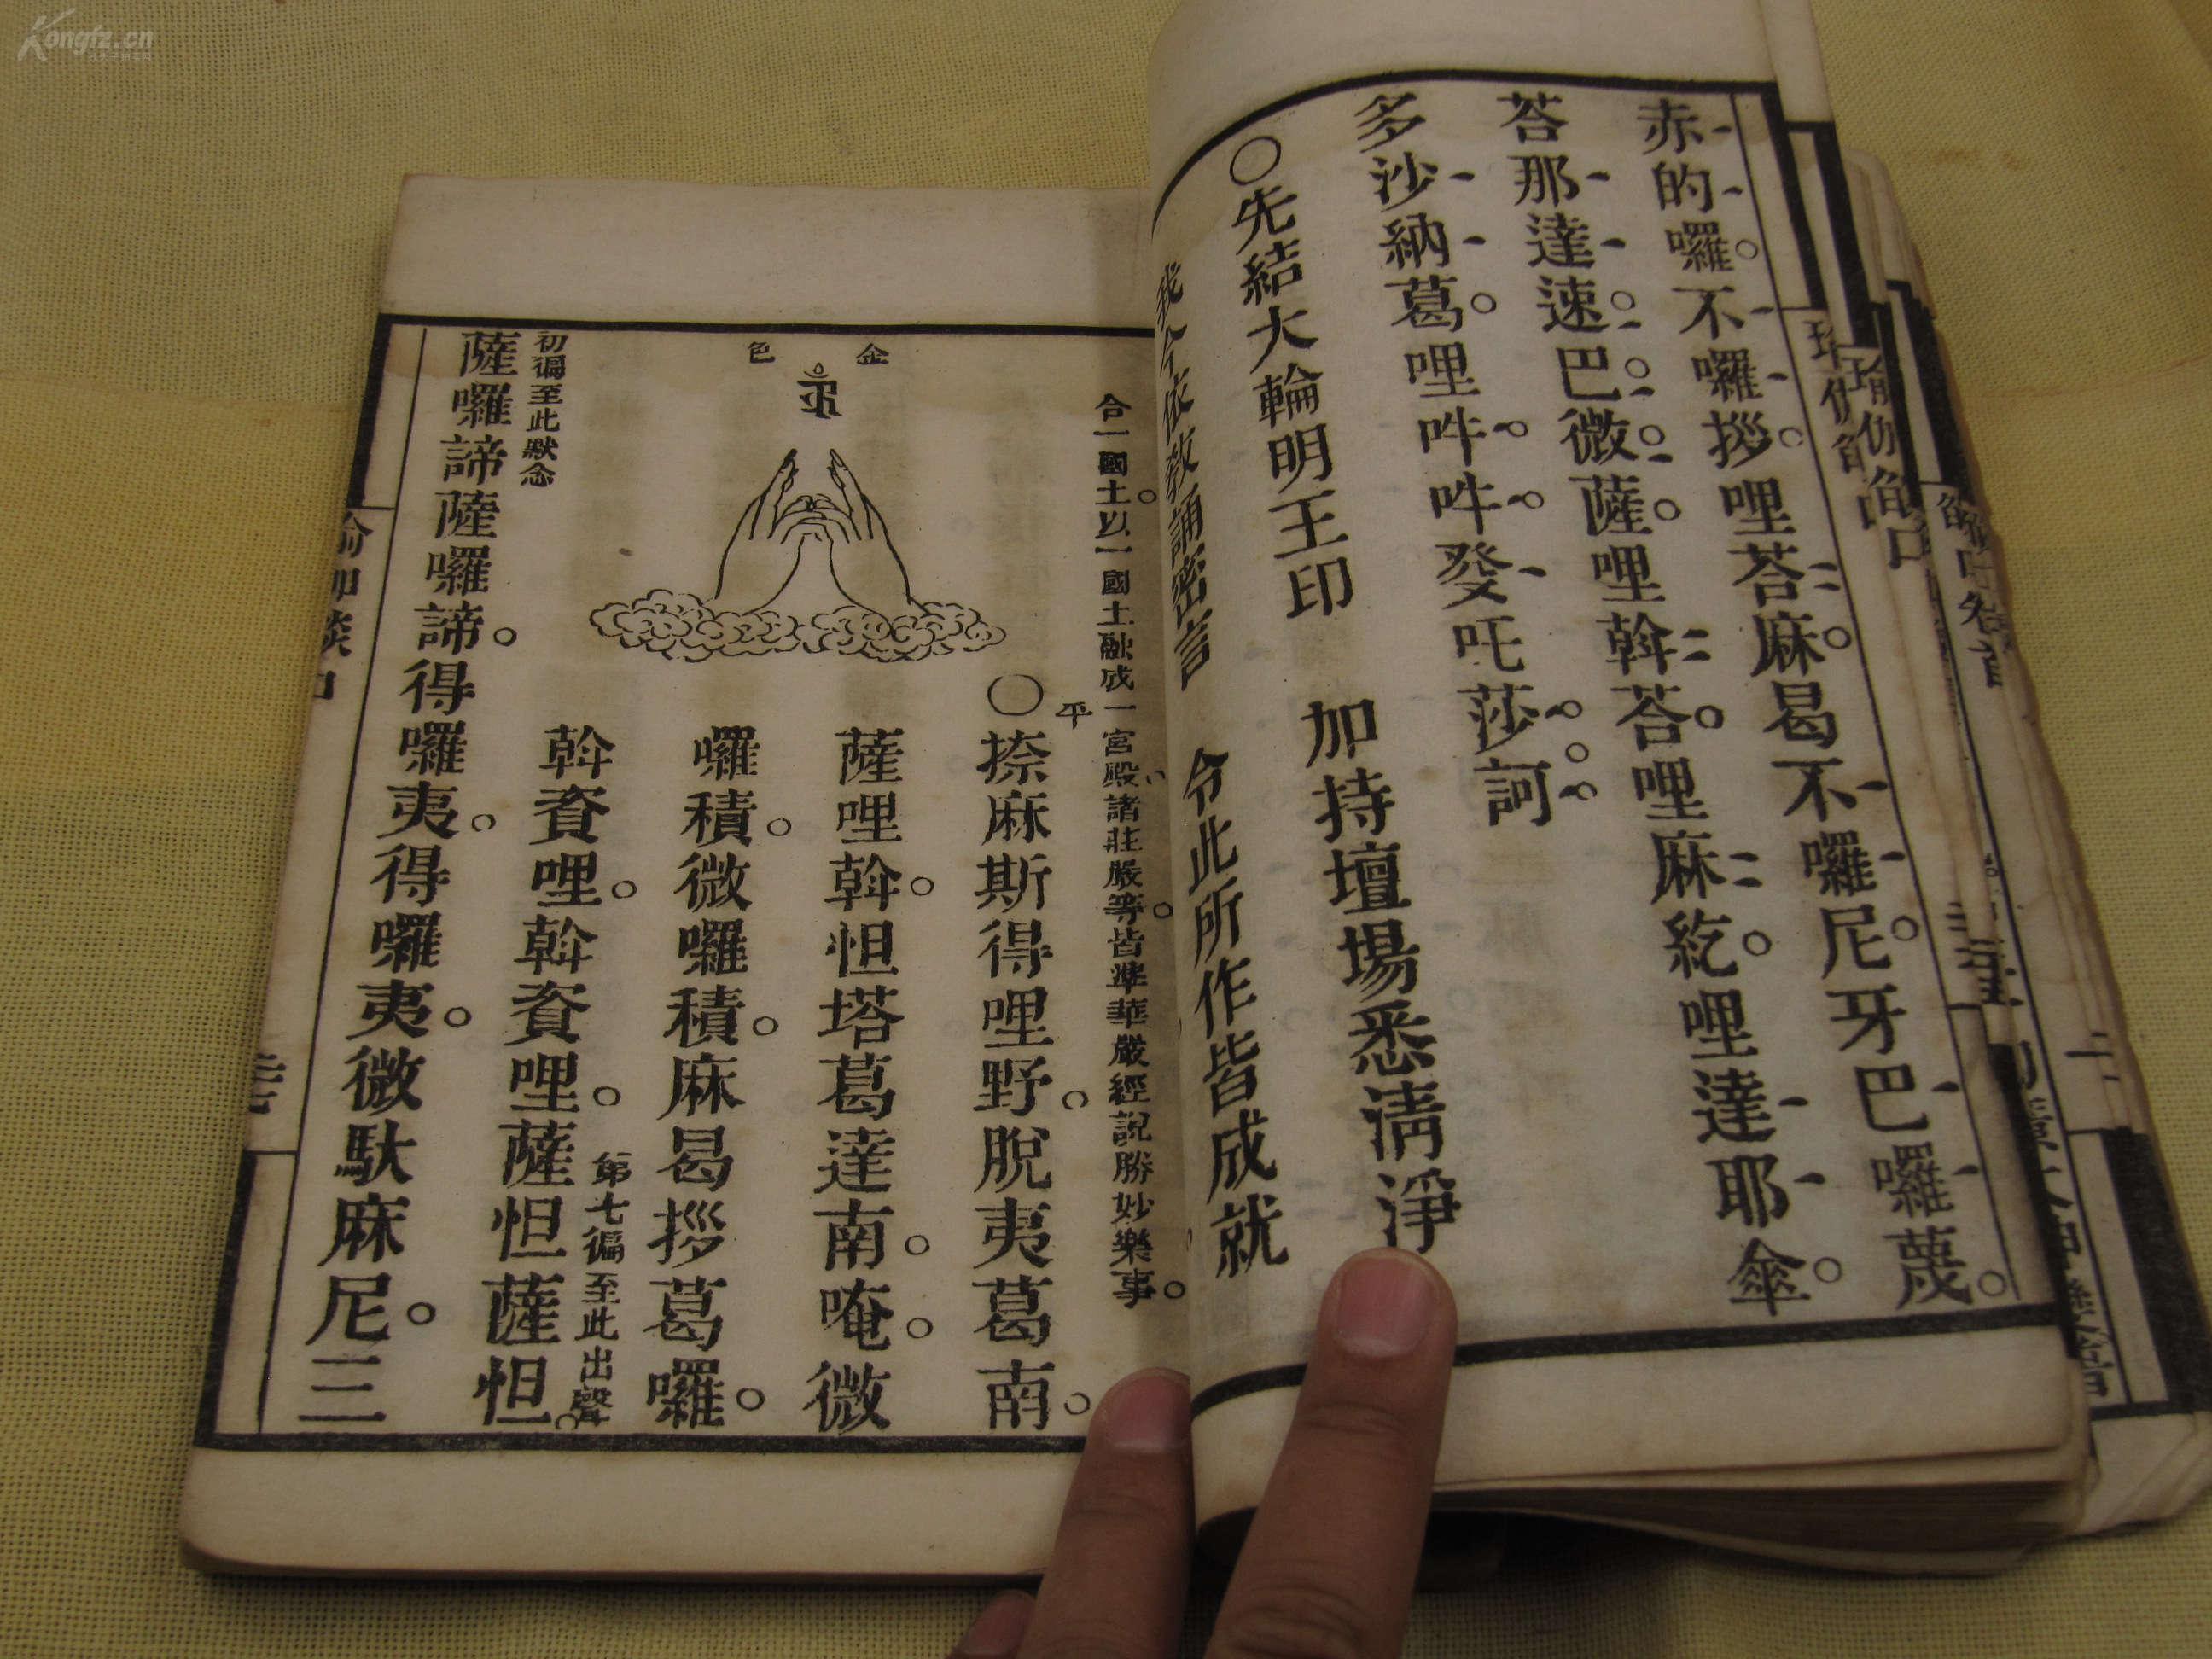 赤的囉。不囉拶。哩荅麻。曷不囉尼。牙巴囉蔑。
荅那達速。巴。微。薩。哩斡荅。哩麻紇。哩達耶傘。
多沙納葛。哩吽。吽。發吒莎。訶。
○先結大輪明王印 加持壇場悉清淨
我今依教誦密言 令此所作皆成就
合一國土。以一國土融成一宮殿諸莊嚴等。皆準華嚴經說勝妙樂事。
平
○捺麻斯得哩野。脫夷葛南。
薩哩斡。怛塔葛達南。唵。微
囉積。微囉積。麻曷拶葛囉。
第七徧至此出聲
斡資哩。斡資哩。薩怛薩怛。
金色
初徧至此默念
薩囉諦薩囉諦。得囉夷。得囉夷。微馱麻尼。三
Kongfz.cn